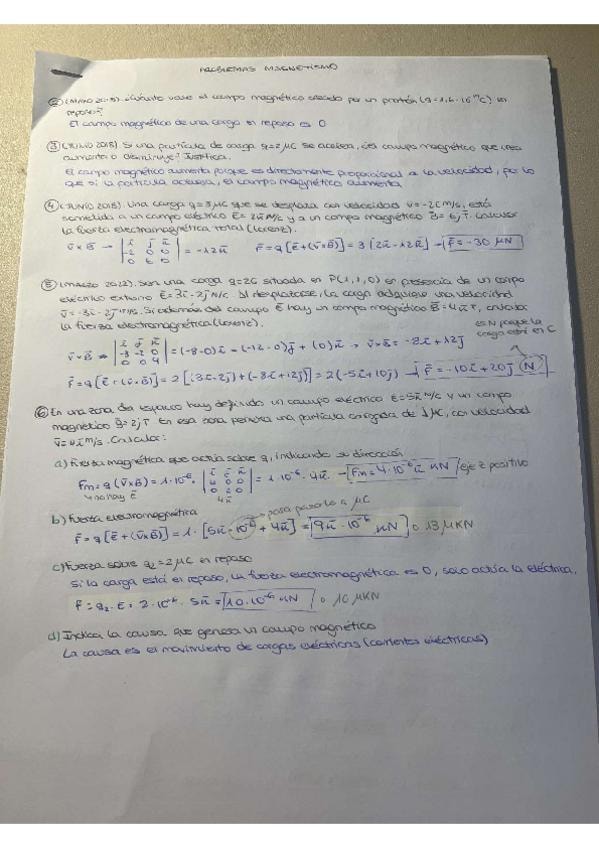 PROBLEMAS MAGNETISMO
② (MAYO 2018). ¿Cuánto vale el campo magnético creado por un protón (q=1,6·10⁻¹⁹C) en
reposo?
El campo magnético de una carga en reposo es 0
③ (JUNIO 2018) Si una partícula de carga q=2μC se acelera, ¿el campo magnético que crea
aumenta o disminuye? Justifica.
El campo magnético aumenta porque es directamente proporcional a la velocidad, por lo
que si la partícula acelera, el campo magnético aumenta
④ (JUNIO 2018). Una carga q=3μC que se desplaza con velocidad v=-2i m/s, está
sometida a un campo eléctrico E= N/C y a un campo magnético B=6j T. Calcular
la fuerza electromagnética total (Lorenz).
v×B → | i j k | -2 0 0 | 0 6 0 | = -12k F=q[E+(v×B)]=3[2k-12k] → F=-30 μN
⑤ (MARZO 2022). Sea una carga q=2C situada en P(1,1,0) en presencia de un campo
eléctrico externo E=3i-2j N/C. Al desplazarse, la carga adquiere una velocidad
v=-3i-2j m/s. Si además del campo E hay un campo magnético B=4k T, calcula
la fuerza electromagnética (Lorenz).
es N porque la
carga está en C
v×B → | i j k | -3 -2 0 | 0 0 4 | =(-8-0)i-(-12-0)j+(0)k → v×B=-8i+12j
F=q[E+(v×B)]=2[(3i-2j)+(-8i+12j)]=2(-5i+10j) → F=-10i+20j N
⑥ En una zona del espacio hay definido un campo eléctrico E=5k N/C y un campo
magnético B=2j T. En esa zona penetra una partícula cargada de 1μC, con velocidad
v= m/s. Calcular:
a) Fuerza magnética que actúa sobre q, indicando su dirección
Fm=q(v×B)=1·10⁻⁶· =1·10⁻⁶·4k → Fm=4·10⁻⁶k N eje z positivo
↳ no hay E
4k
b) Fuerza electromagnética → para pasarlo a μC
F=q[E+(v×B)]=1·[5k·10⁻⁶+4k]= 9k·10⁻⁶ N
c) Fuerza sobre q₂=2μC en reposo
Si la carga está en reposo, la fuerza electromagnética es 0, solo actúa la eléctrica.
F=q₂·E=2·10⁻⁶·5k= 10·10⁻⁶ kN o 10 μkN
d) Indica la causa que genera un campo magnético
La causa es el movimiento de cargas eléctricas (corrientes eléctricas)